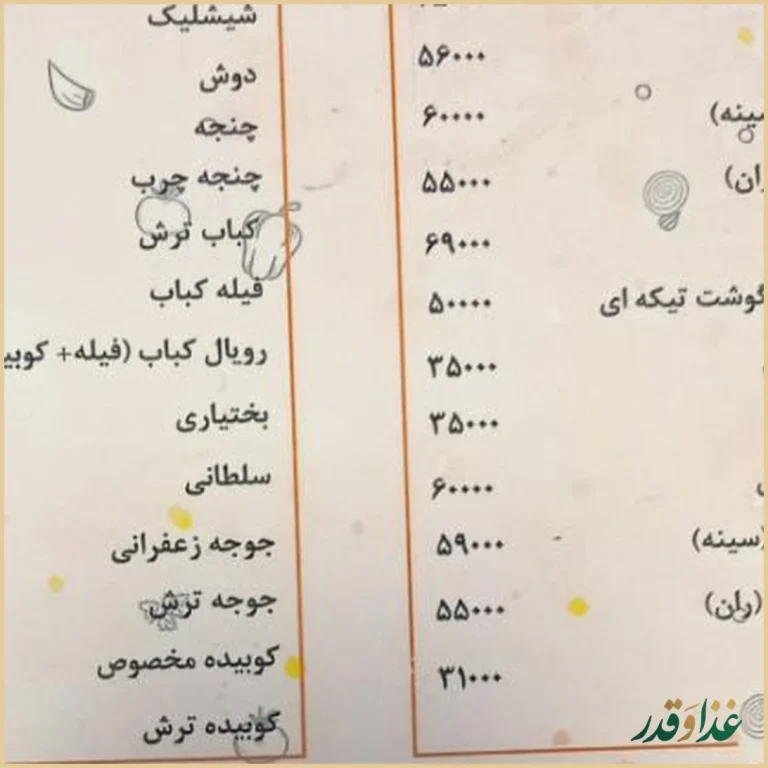 ۵۶۰۰۰
سینه)
۶۰۰۰۰
ران)
۵۵۰۰۰
۶۹۰۰۰
گوشت تیکه ای
۵۰۰۰۰
۳۵۰۰۰
۳۵۰۰۰
۶۰۰۰۰
(سینه)
۵۹۰۰۰
(ران)
۵۵۰۰۰
۳۱۰۰۰
شیشلیک
دوش
چنجه
چنجه چرب
کباب ترش
فیله کباب
رویال کباب (فیله+ کوبی
بختیاری
سلطانی
جوجه زعفرانی
جوجه ترش
کوبیده مخصوص
کوبیده ترش
غذا و قدر